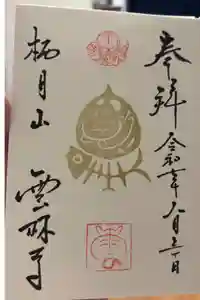 奉拝
令和七年八月三十日
栖月山
雲林寺